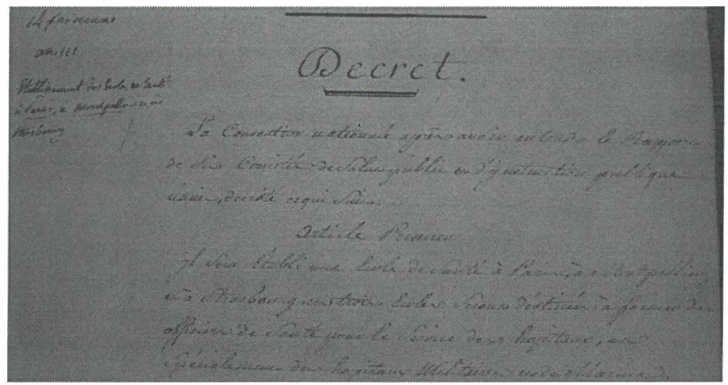 14 frimaire
an III
Etablissement des Ecoles de Santé
à Paris, à Montpellier et à
Strasbourg
Décret.
La Convention nationale après avoir entendu le Rapport
de ses Comités de Salut public et d'instruction publique
réunis, décrète ce qui suit.
Article Premier
Il sera établi une Ecole de Santé à Paris, à Montpellier
et à Strasbourg, ces trois Ecoles seront destinées à former des
officiers de Santé pour le Service des hopitaux, et
spécialement des hopitaux Militaires et de Marine